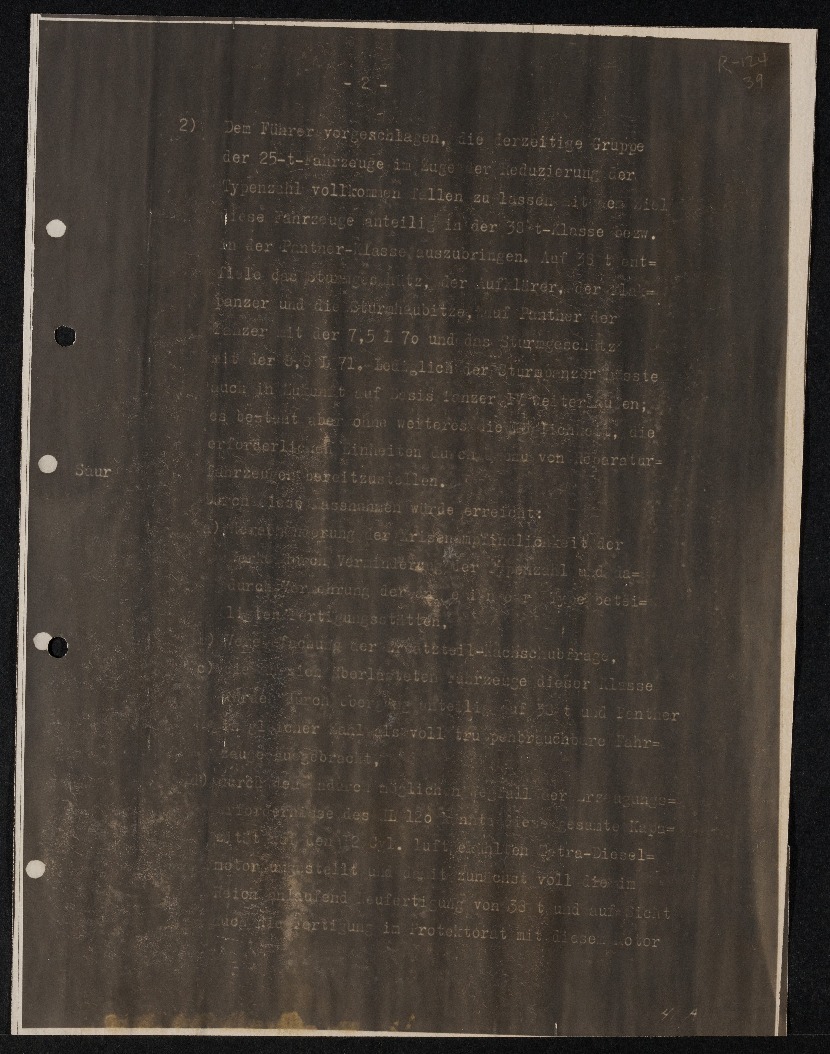 R-124
39
- 2 -
2) Dem Führer vorgeschlagen, die derzeitige Gruppe
der 25-t-Fahrzeuge im Zuge der Reduzierung der
Typenzahl vollkommen fallen zu lassen mit dem Ziel
diese Fahrzeuge anteilig in der 38 t-Klasse bezw.
in der Panther-Klasse auszubringen. Auf 38 t ent=
fiele das Sturmgeschütz, der Aufklärer, der Flak=
panzer und die Sturmhaubitze, auf Panther der
Panzer mit der 7,5 L 7o und das Sturmgeschütz
mit der 8,8 L 71. Lediglich der Sturmpanzer müsste
auch in Zukunft auf Basis Panzer IV weiterlaufen;
es besteht aber ohne weiteres die Möglichkeit, die
erforderlichen Einheiten durch von Reparatur=
Saur
fahrzeugen bereitzustellen.
Durch diese Massnahmen würde erreicht:
a) der Krisenempfindlichkeit der
durch Verminderung der Typenzahl und da=
durch Vermehrung der an Type betei=
ligten Fertigungsstätten,
b) der Ersatzteil-Nachschubfrage,
c) überlasteten Fahrzeuge dieser Klasse
würden durch anteilig auf 38 t und Panther
in gleicher Zahl als voll truppenbrauchbare Fahr=
zeuge ausgebracht,
d) würde den möglichen Wegfall der Erzeugungs=
erfordernisse des HL 12o könnte die gesamte Kapa=
zität luftgekühlten Tatra-Diesel=
motor umgestellt und damit zunächst voll die im
Reich anlaufend Neufertigung von 38 t und auf Sicht
auch die Fertigung im Protektorat mit diesem Motor